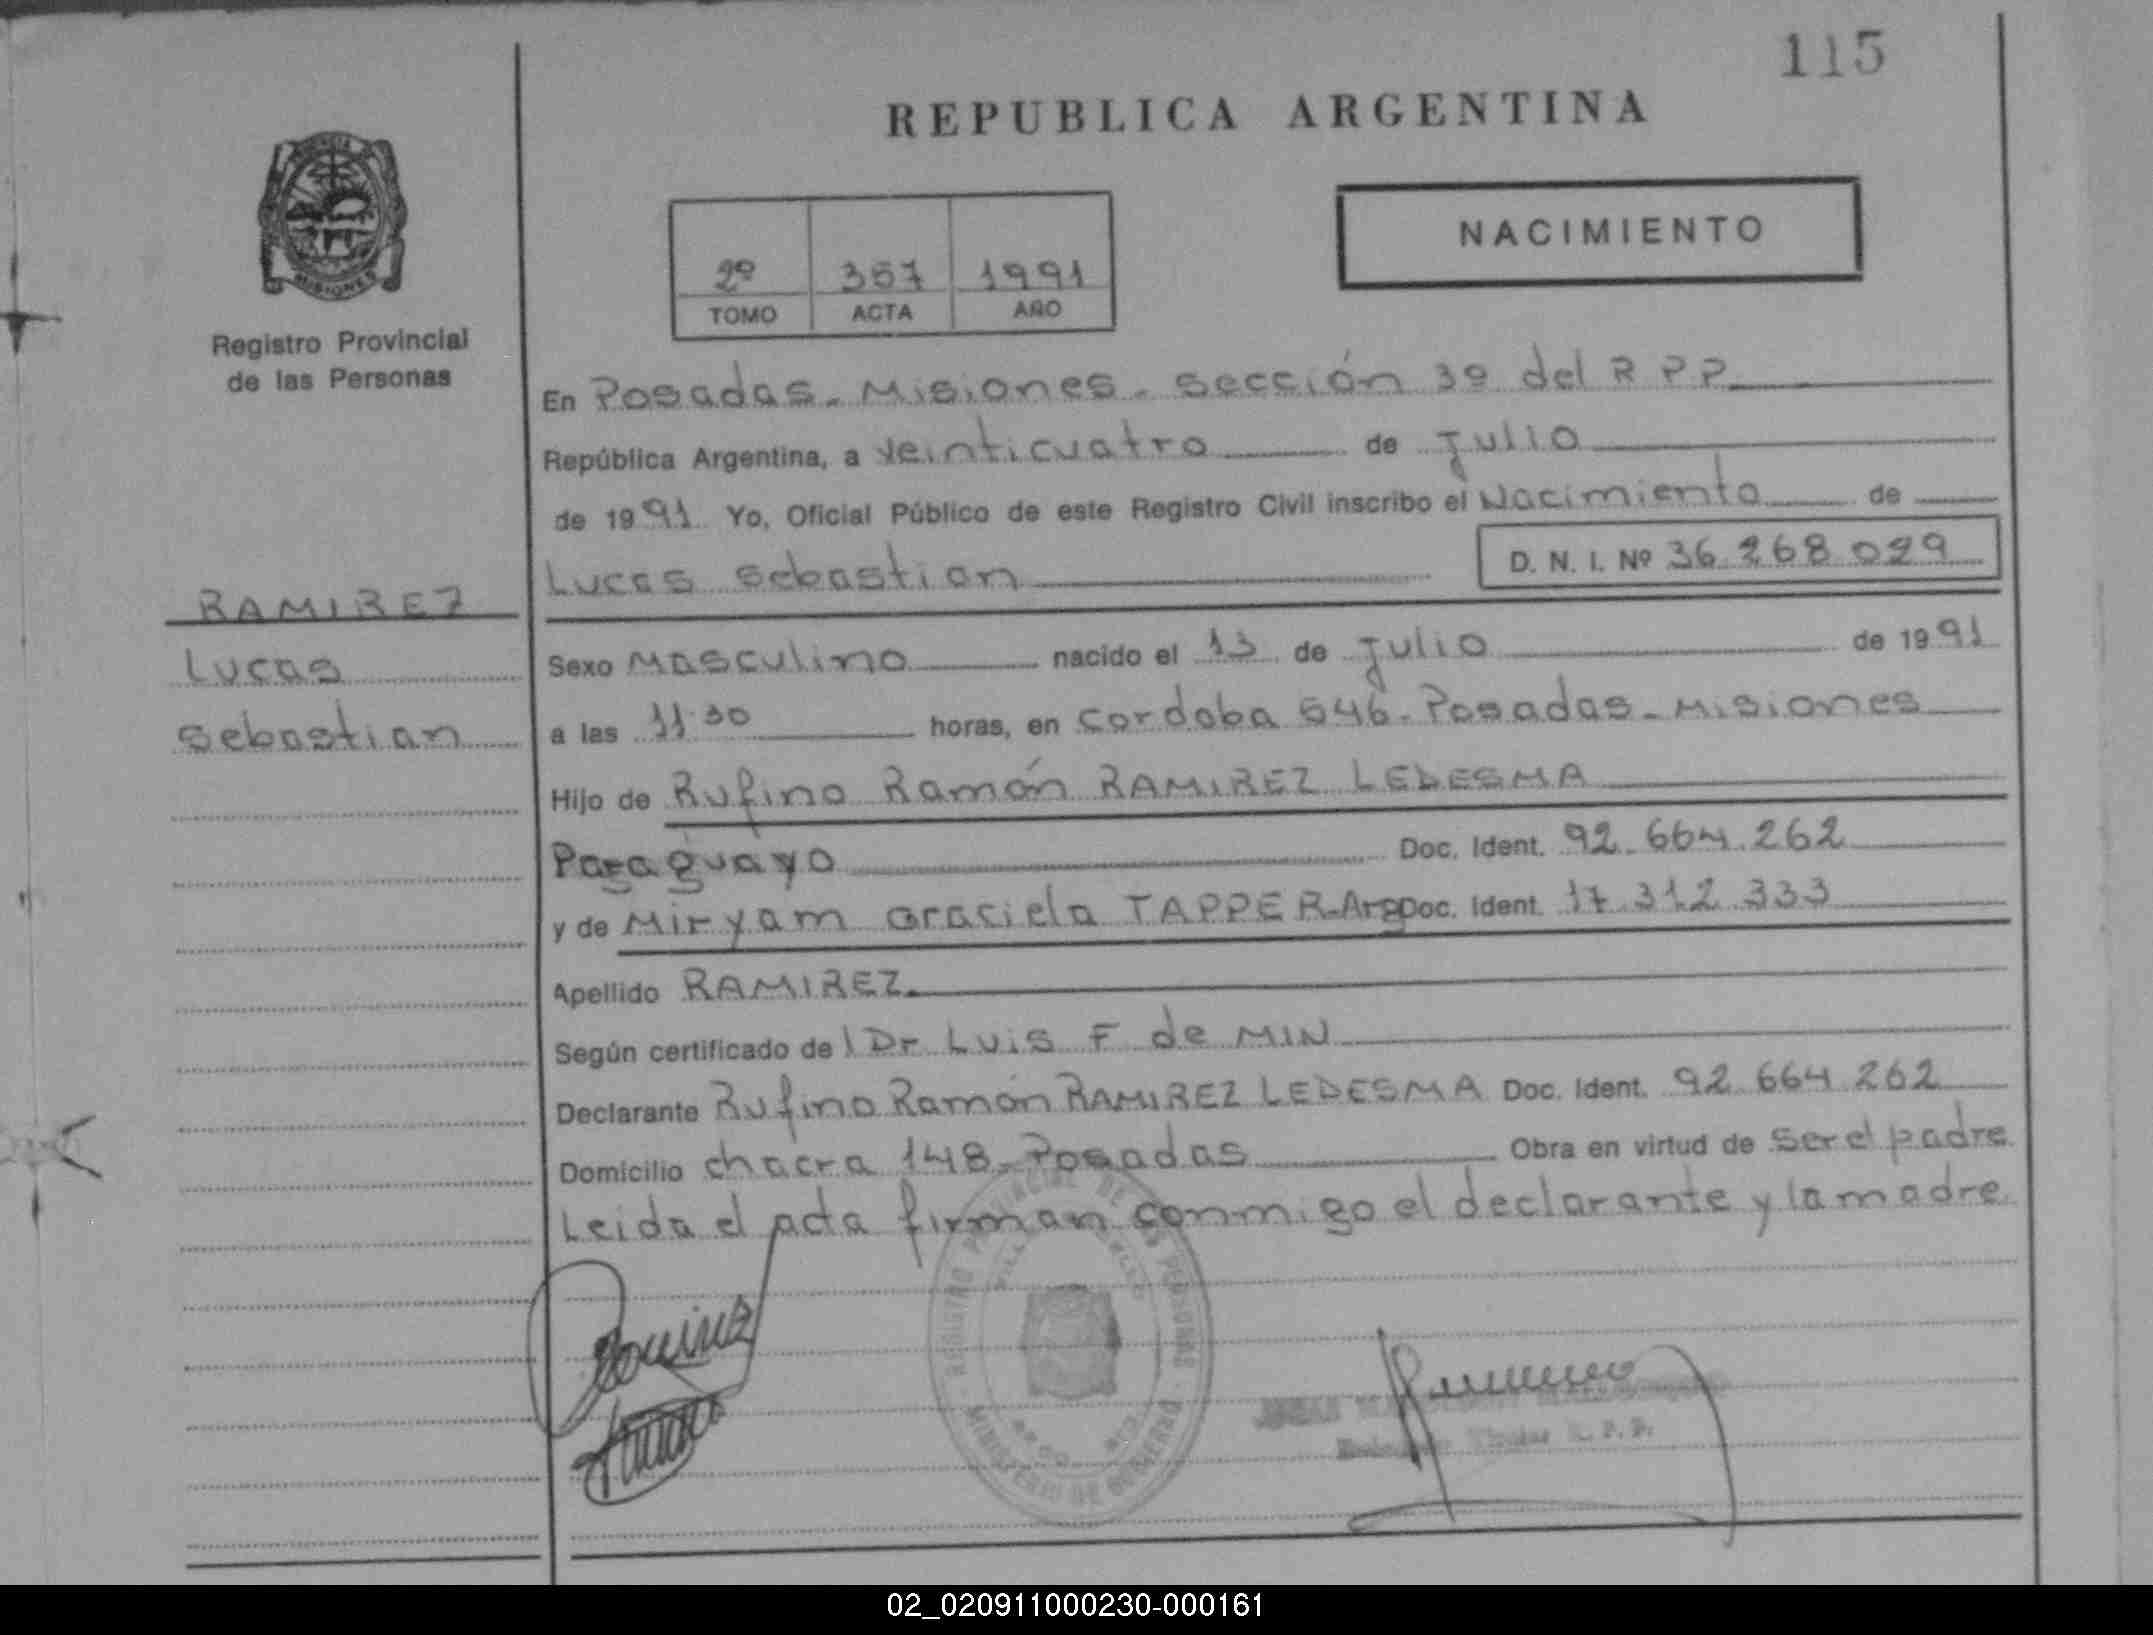 115
REPUBLICA ARGENTINA
NACIMIENTO
2º 357 1991
TOMO ACTA AÑO
Registro Provincial
de las Personas
RAMIREZ
Lucas
Sebastian
En Posadas - Misiones - sección 3º del R P P
República Argentina, a veinticuatro de Julio
de 1991 Yo, Oficial Público de este Registro Civil inscribo el Nacimiento de
Lucas Sebastian D. N. I. Nº 36.268.029
Sexo Masculino nacido el 13 de Julio de 1991
a las 11.30 horas, en Cordoba 646 - Posadas - Misiones
Hijo de Rufino Ramón RAMIREZ LEDESMA
Paraguayo Doc. Ident. 92.664.262
y de Miryam Graciela TAPPER - Arg Doc. Ident. 17.312.333
Apellido RAMIREZ
Según certificado de l Dr Luis F de MIN
Declarante Rufino Ramón RAMIREZ LEDESMA Doc. Ident. 92.664.262
Domicilio chacra 148 - Posadas Obra en virtud de ser el padre
Leida el acta firman conmigo el declarante y la madre
REGISTRO PROVINCIAL DE LAS PERSONAS
MINISTERIO DE GOBIERNO
02_020911000230-000161